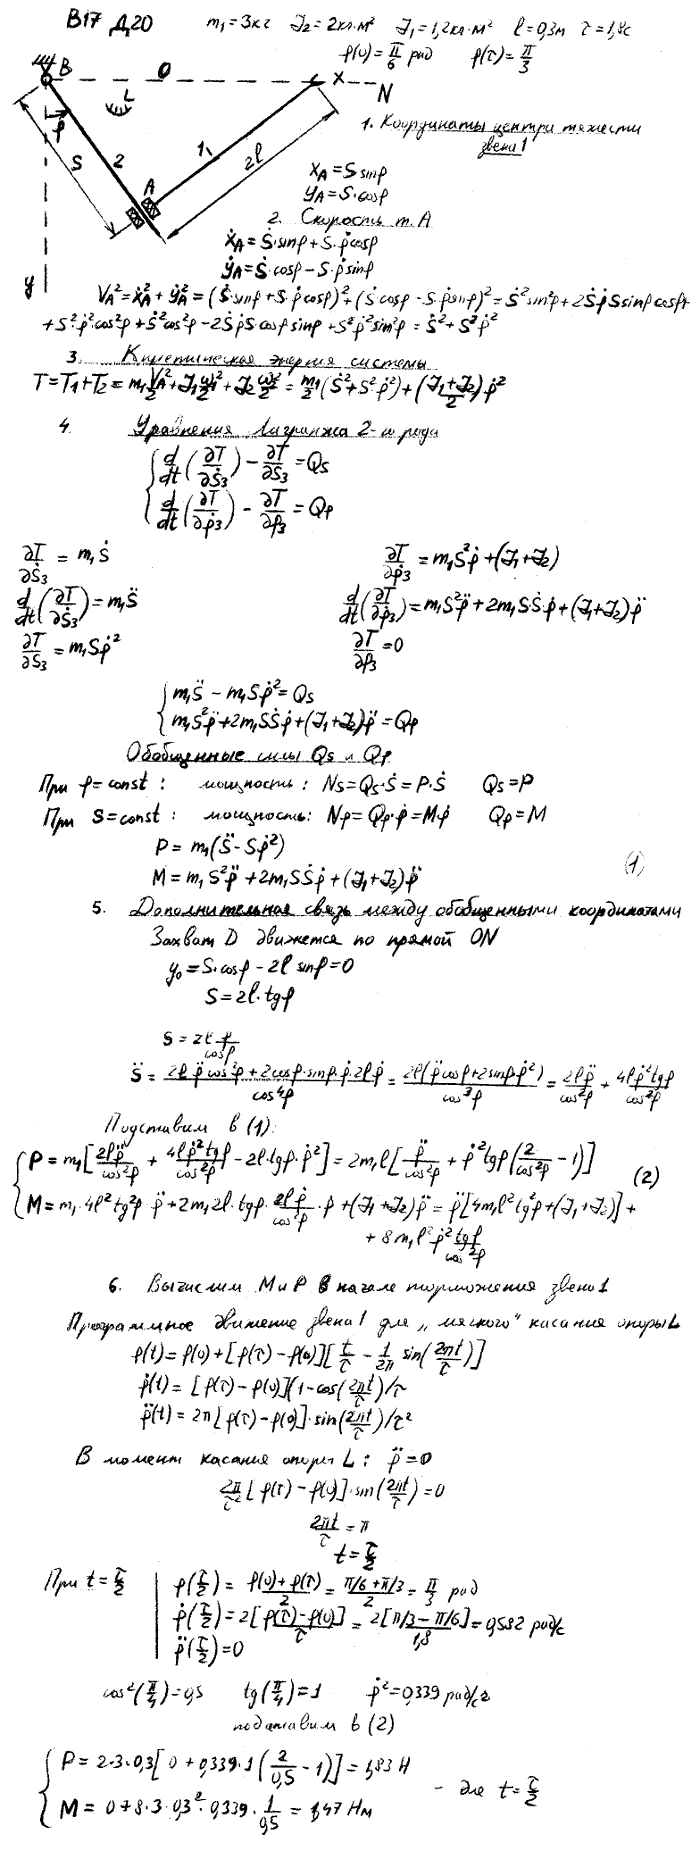 В17 Д20 m₁=3кг J₂=2кг·м² J₁=1,2кг·м² l=0,3м τ=1,8с
φ(0)=π/6 рад φ(τ)=π/3
B O x N
L
φ
S 2 1 2l
A
y
1. Координаты центра тяжести
звена 1
x_A=S sinφ
y_A=S·cosφ
2. Скорость т. A
ẋ_A=Ṡ·sinφ+S·φ̇cosφ
ẏ_A=Ṡ·cosφ−S·φ̇sinφ
V_A²=ẋ_A²+ẏ_A²=(Ṡ·sinφ+S·φ̇cosφ)²+(Ṡ·cosφ−S·φ̇sinφ)²=Ṡ²sin²φ+2Ṡφ̇S sinφ cosφ+
+S²·φ̇²cos²φ+Ṡ²cos²φ−2Ṡφ̇S cosφ sinφ+S²φ̇²sin²φ=Ṡ²+S²φ̇²
3. Кинетическая энергия системы
T=T₁+T₂=m₁V_A²/2+J₁ω₁²/2+J₂ω²/2=m₁/2(Ṡ²+S²·φ̇²)+((J₁+J₂)/2)φ̇²
4. Уравнения Лагранжа 2-го рода
d/dt(∂T/∂Ṡ₃)−∂T/∂S₃=Q_S
d/dt(∂T/∂φ̇₃)−∂T/∂φ₃=Q_φ
∂T/∂Ṡ₃=m₁Ṡ ∂T/∂φ̇₃=m₁S²φ̇+(J₁+J₂)
d/dt(∂T/∂Ṡ₃)=m₁S̈ d/dt(∂T/∂φ̇₃)=m₁S²φ̈+2m₁SṠφ̇+(J₁+J₂)φ̈
∂T/∂S₃=m₁Sφ̇² ∂T/∂φ₃=0
m₁S̈−m₁Sφ̇²=Q_S
m₁S²φ̈+2m₁SṠφ̇+(J₁+J₂)φ̈=Q_φ
Обобщенные силы Q_S и Q_φ
При φ=const: мощность: N_S=Q_S·Ṡ=P·Ṡ Q_S=P
При S=const: мощность: N_φ=Q_φ·φ̇=M·φ̇ Q_φ=M
P=m₁(S̈−Sφ̇²)
M=m₁S²φ̈+2m₁SṠφ̇+(J₁+J₂)φ̈ (1)
5. Дополнительная связь между обобщенными координатами
Захват D движется по прямой ON
y₀=S·cosφ−2l sinφ=0
S=2l·tgφ
Ṡ=2l φ̇/cos²φ
S̈=(2l·φ̈cos²φ+2cosφ·sinφ·φ̇·2lφ̇)/cos⁴φ=2l(φ̈cosφ+2sinφ·φ̇²)/cos³φ=2lφ̈/cos²φ+4lφ̇²tgφ/cos²φ
Подставим в (1):
P=m₁[2lφ̈/cos²φ+4lφ̇²tgφ/cos²φ−2l·tgφ·φ̇²]=2m₁l[φ̈/cos²φ+φ̇²tgφ(2/cos²φ−1)]
M=m₁·4l²tg²φ·φ̈+2m₁2l·tgφ·2lφ̇/cos²φ·φ+(J₁+J₂)φ̈=φ̈[4m₁l²tg²φ+(J₁+J₂)]+ (2)
+8m₁l²φ̇²tgφ/cos²φ
6. Вычислим M и P в начале торможения звена 1
Программное движение звена 1 для „мягкого" касания опоры L
φ(t)=φ(0)+[φ(τ)−φ(0)][t/τ−1/2π sin(2πt/τ)]
φ̇(t)=[φ(τ)−φ(0)](1−cos(2πt/τ)/τ
φ̈(t)=2π[φ(τ)−φ(0)]·sin(2πt/τ)/τ²
В момент касания опоры L: φ̈=0
2π/τ²[φ(τ)−φ(0)]·sin(2πt/τ)=0
2πt/τ=π
t=τ/2
При t=τ/2 φ(τ/2)=(φ(0)+φ(τ))/2=(π/6+π/3)/2=π/3 рад
φ̇(τ/2)=2[φ(τ)−φ(0)]/τ=2[π/3−π/6]/1,8=0,582 рад/с
φ̈(τ/2)=0
cos²(π/4)=0,5 tg(π/4)=1 φ̇²=0,339 рад/с²
подставим в (2)
P=2·3·0,3[0+0,339·1(2/0,5−1)]=1,83 Н
M=0+8·3·0,3²·0,339·1/0,5=1,47 Нм – для t=τ/2